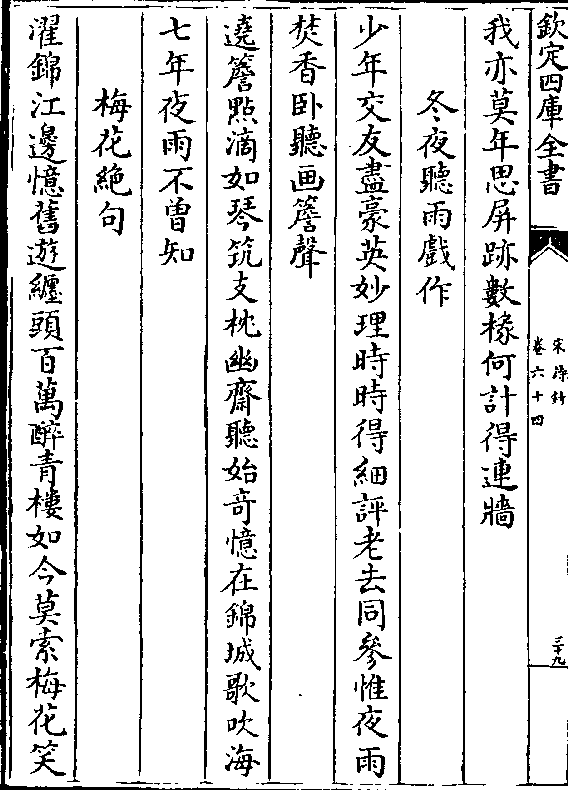 欽定四庫全書
宋詩鈔
卷六十四
三十九
我亦莫年思屏跡數椽何計得連牆
冬夜聽雨戲作
少年交友盡豪英妙理時時得細評老去同參惟夜雨
焚香卧聽画簷聲
遶簷點滴如琴筑支枕幽齋聽始奇憶在錦城歌吹海
七年夜雨不曽知
梅花絶句
濯錦江邊憶舊遊纏頭百萬醉青樓如今莫索梅花笑